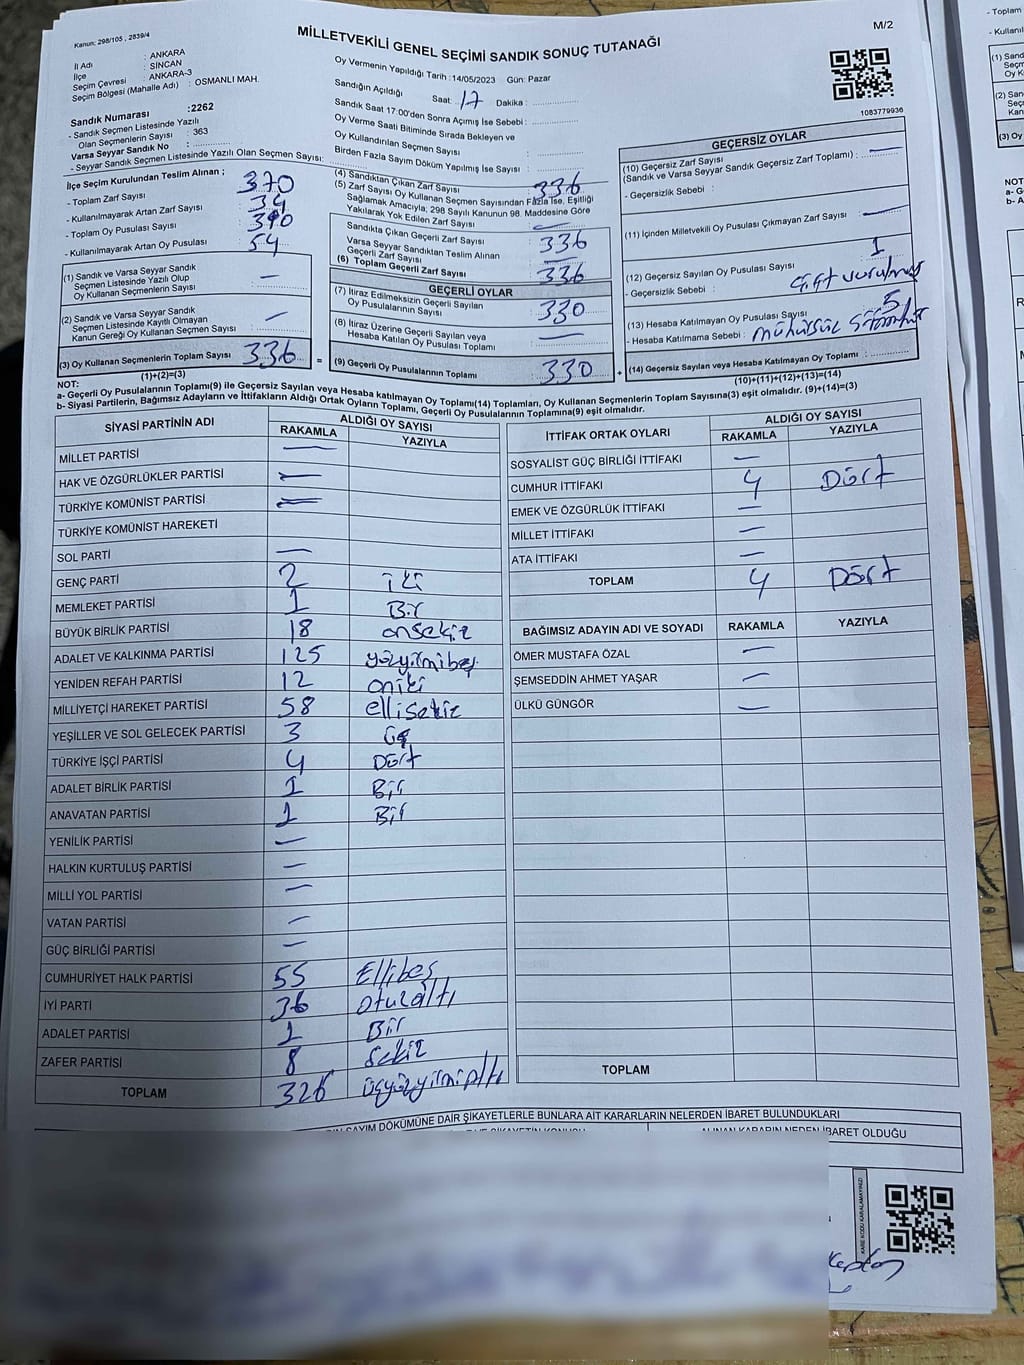 Kanun: 298/105 , 2839/4
M/2
MİLLETVEKİLİ GENEL SEÇİMİ SANDIK SONUÇ TUTANAĞI
İl Adı : ANKARA
İlçe : SİNCAN
Seçim Çevresi : ANKARA-3
Seçim Bölgesi (Mahalle Adı) : OSMANLI MAH.
Sandık Numarası :2262
- Sandık Seçmen Listesinde Yazılı
Olan Seçmenlerin Sayısı : 363
Varsa Seyyar Sandık No :
- Seyyar Sandık Seçmen Listesinde Yazılı Olan Seçmen Sayısı:
Oy Vermenin Yapıldığı Tarih :14/05/2023 Gün: Pazar
Sandığın Açıldığı Saat : 17 Dakika :
Sandık Saat 17:00'den Sonra Açılmış İse Sebebi :
Oy Verme Saati Bitiminde Sırada Bekleyen ve
Oy Kullandırılan Seçmen Sayısı :
Birden Fazla Sayım Döküm Yapılmış İse Sayısı :
1083779936
İlçe Seçim Kurulundan Teslim Alınan ;
- Toplam Zarf Sayısı : 370
- Kullanılmayarak Artan Zarf Sayısı : 34
- Toplam Oy Pusulası Sayısı :
- Kullanılmayarak Artan Oy Pusulası : 54
(1) Sandık ve Varsa Seyyar Sandık
Seçmen Listesinde Yazılı Olup
Oy Kullanan Seçmenlerin Sayısı : —
(2) Sandık ve Varsa Seyyar Sandık
Seçmen Listesinde Kayıtlı Olmayan
Kanun Gereği Oy Kullanan Seçmen Sayısı : —
(3) Oy Kullanan Seçmenlerin Toplam Sayısı 336 =
(1)+(2)=(3)
(4) Sandıktan Çıkan Zarf Sayısı : 336
(5) Zarf Sayısı Oy Kullanan Seçmen Sayısından Fazla İse, Eşitliği
Sağlamak Amacıyla; 298 Sayılı Kanunun 98. Maddesine Göre
Yakılarak Yok Edilen Zarf Sayısı : —
Sandıkta Çıkan Geçerli Zarf Sayısı 336
Varsa Seyyar Sandıktan Teslim Alınan
Geçerli Zarf Sayısı —
(6) Toplam Geçerli Zarf Sayısı 336
GEÇERLİ OYLAR
(7) İtiraz Edilmeksizin Geçerli Sayılan
Oy Pusulalarının Sayısı : 330
(8) İtiraz Üzerine Geçerli Sayılan veya
Hesaba Katılan Oy Pusulası Toplamı —
(9) Geçerli Oy Pusulalarının Toplamı : 330 +
GEÇERSİZ OYLAR
(10) Geçersiz Zarf Sayısı
(Sandık ve Varsa Seyyar Sandık Geçersiz Zarf Toplamı) : —
- Geçersizlik Sebebi :
(11) İçinden Milletvekili Oy Pusulası Çıkmayan Zarf Sayısı : —
(12) Geçersiz Sayılan Oy Pusulası Sayısı : 1
- Geçersizlik Sebebi : Çift vurulmuş
(13) Hesaba Katılmayan Oy Pusulası Sayısı : 5
- Hesaba Katılmama Sebebi : mühürsüz
(14) Geçersiz Sayılan veya Hesaba Katılmayan Oy Toplamı :
(10)+(11)+(12)+(13)=(14)
NOT:
a- Geçerli Oy Pusulalarının Toplamı(9) ile Geçersiz Sayılan veya Hesaba katılmayan Oy Toplamı(14) Toplamları, Oy Kullanan Seçmenlerin Toplam Sayısına(3) eşit olmalıdır. (9)+(14)=(3)
b- Siyasi Partilerin, Bağımsız Adayların ve İttifakların Aldığı Ortak Oyların Toplamı, Geçerli Oy Pusulalarının Toplamına(9) eşit olmalıdır.
SİYASİ PARTİNİN ADI ALDIĞI OY SAYISI
RAKAMLA YAZIYLA
MİLLET PARTİSİ —
HAK VE ÖZGÜRLÜKLER PARTİSİ —
TÜRKİYE KOMÜNİST PARTİSİ —
TÜRKİYE KOMÜNİST HAREKETİ
SOL PARTİ —
GENÇ PARTİ 2 iki
MEMLEKET PARTİSİ 1 Bir
BÜYÜK BİRLİK PARTİSİ 18 onsekiz
ADALET VE KALKINMA PARTİSİ 125 yüzyirmibeş
YENİDEN REFAH PARTİSİ 12 oniki
MİLLİYETÇİ HAREKET PARTİSİ 58 ellisekiz
YEŞİLLER VE SOL GELECEK PARTİSİ 3 üç
TÜRKİYE İŞÇİ PARTİSİ 4 Dört
ADALET BİRLİK PARTİSİ 1 Bir
ANAVATAN PARTİSİ 1 Bir
YENİLİK PARTİSİ —
HALKIN KURTULUŞ PARTİSİ —
MİLLİ YOL PARTİSİ —
VATAN PARTİSİ —
GÜÇ BİRLİĞİ PARTİSİ —
CUMHURİYET HALK PARTİSİ 55 Ellibeş
İYİ PARTİ 36 otuzaltı
ADALET PARTİSİ 1 Bir
ZAFER PARTİSİ 8 Sekiz
TOPLAM 326 üçyüzyirmialtı
İTTİFAK ORTAK OYLARI ALDIĞI OY SAYISI
RAKAMLA YAZIYLA
SOSYALIST GÜÇ BİRLİĞİ İTTİFAKI —
CUMHUR İTTİFAKI 4 Dört
EMEK VE ÖZGÜRLÜK İTTİFAKI —
MİLLET İTTİFAKI —
ATA İTTİFAKI —
TOPLAM 4 Dört
BAĞIMSIZ ADAYIN ADI VE SOYADI RAKAMLA YAZIYLA
ÖMER MUSTAFA ÖZAL —
ŞEMSEDDİN AHMET YAŞAR —
ÜLKÜ GÜNGÖR —
TOPLAM
SAYIM DÖKÜMÜNE DAİR ŞİKAYETLERLE BUNLARA AİT KARARLARIN NELERDEN İBARET BULUNDUKLARI
ALINAN KARARIN NEDEN İBARET OLDUĞU
KARE KODU KARALAMAYINIZ!
- Toplam
- Kullanıl
(1) Sand
Seçm
Oy K
(2) San
Seç
Kan
(3) Oy
NOT
a- G
b- A